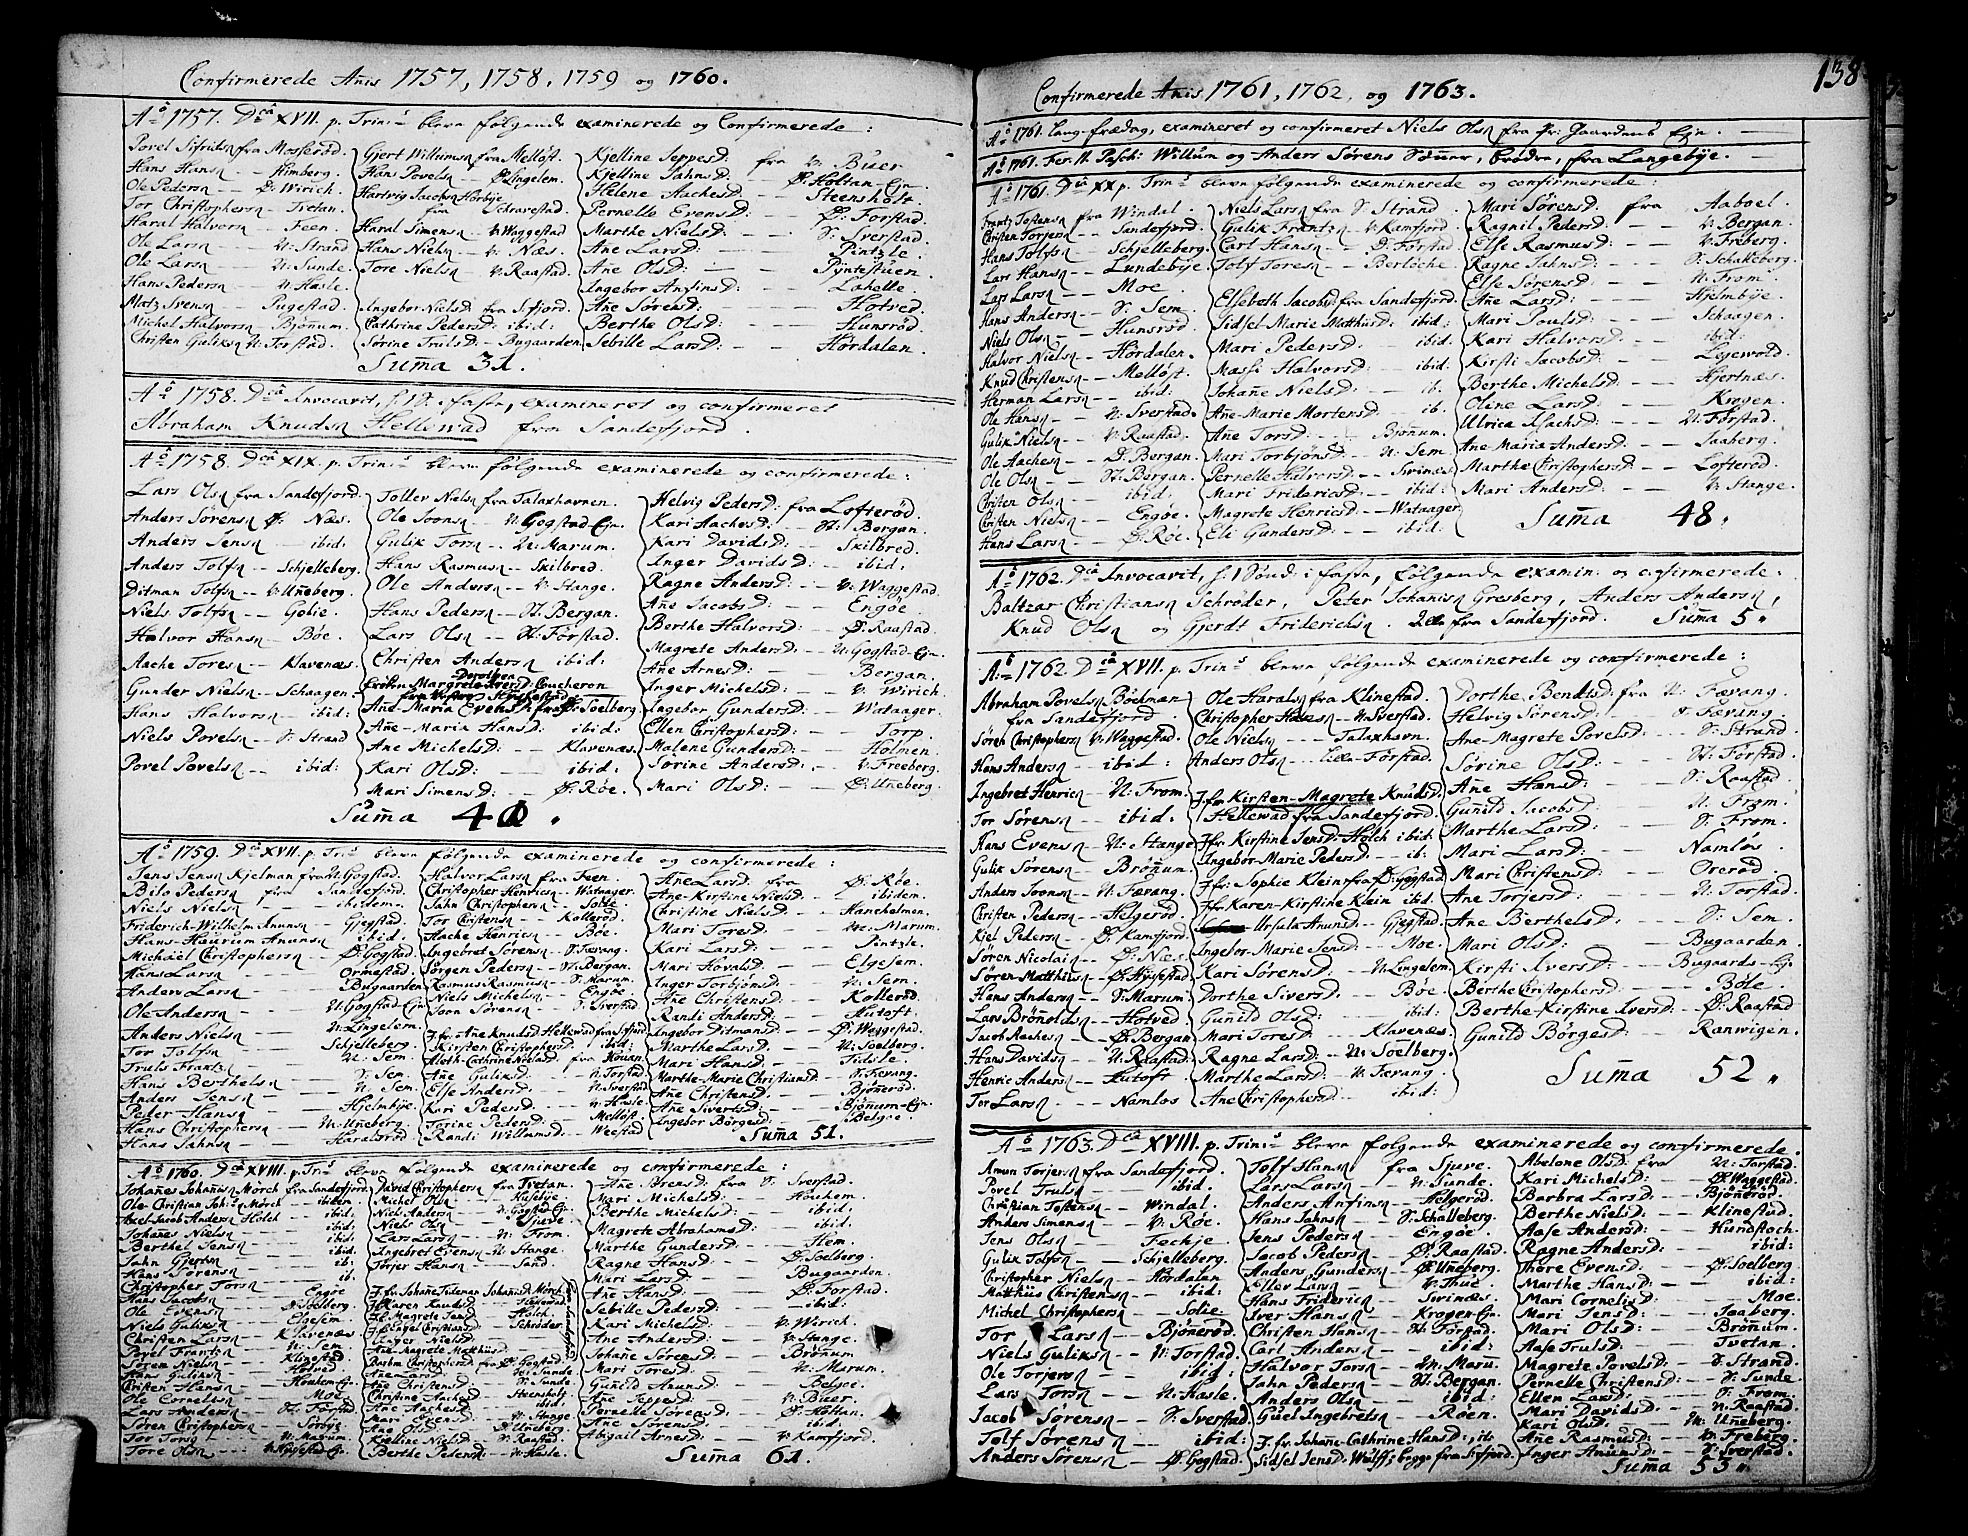 Confirmerede Añis 1757, 1758, 1759 og 1760.
Aº 1757. Dca XVII. p. Trin: bleve følgende examinerede og Confirmerede:
Hans Hansn -- Himberg.
Ole Pedersn -- Ø: Wirich.
Tor Christophersn -- Tvetan.
Haral Halvorn -- Feen.
Ole Larsn -- N: Strand
Ole Larsn -- N: Sunde.
Hans Pedersn -- N: Hasle.
Matz Svensn -- Pugestad.
Michel Halvorsn -- Bjønum.
Christen Guliksn N: Torstad.
Gjert Willumsn fra Melløst.
Hans Povelsn -- Ø: Lingelem.
Hartvig Jacobsn Hørbye
fra Schravestad.
Haral Simensn -- V: Waggestad
Hans Nielsn -- V: Næs.
Tore Nielsn -- V: Raastad.
Ingebor Nielsd: fra S:fjord.
Cathrine Pedersd: ibid:
Sørine Trulsd: -- Bugaarden
Kjelline Jeppesd: fra V: Buer
Kjelline Jahnsd: -- Ø: Holtan Ejn.
Helene Aachesd: -- Steensholt.
Pernelle Evensd: -- Ø: Forstad.
Marthe Nielsd: -- S: Sverstad.
Ane Larsd: -- Pintzle.
Añe Olsd: -- Pyntestuen.
Ingebor Anfinsd: -- Lahelle.
Añe Sørensd: -- Hotved.
Berthe Olsd: -- Hunsrød.
Sebille Larsd: -- Hørdalen.
Sum̃a 31.
Aº 1758. Dca Invocavit, examineret og confirmeret
Abraham Knudsn Hellewad fra Sandefjord.
Aº 1758. Dca XIX. p. Trin: bleve følgende examinerede og confirmerede:
Lars Olsn fra Sandefjord.
Anders Sørensn Ø: Næs.
Anders Jensn -- ibid:
Anders Tolfsn -- Schjelleberg.
Ditman Tolfsn -- V: Uñeberg.
Niels Tolfsn -- Golie.
Halvor Hansn -- Bøe.
Aache Toresn -- Klavenæs.
Gunder Nielsn -- Schaagen.
Hans Halvorsn -- ibid:
Niels Povelsn -- S: Strand
Povel Povelsn -- ibid:
Toller Nielsn fra Talaxhavnen.
Ole Joonsn -- N: Gogstad Ejn.
Gulik Torsn -- N: Marum.
Hans Rasmusn -- Skilbred.
Ole Andersn -- V: Stange.
Hans Pedersn -- N: Bergan.
Lars Olsn -- N: Førstad.
Christen Andersn ibid:
Añe-Maria Hansd: ibid:
Ane Michelsd: -- Klavenæs.
Kari Olsd: -- ibid:
Mari Simensd: -- Ø: Røe.
Helvig Pedersd: fra Lofterød.
Kari Aachesd: -- N: Bergan.
Kari Davidsd: -- Skilbred.
Inger Davidsd: -- ibid:
Ragne Andersd: -- V: Waggestad
Añe Jacobsd: -- Engøe
Berthe Halvorsd: -- Ø: Raastad.
Magrete Andersd: -- N: Gogstad-Ejn.
Ane Arnesd: -- Bergan.
Inger Michelsd: -- V: Wirich
Ingebor Gundersd: -- Wataager.
Ellen Christophersd: -- Torp.
Malene Gundersd: -- Holmen.
Sørine Andersd: -- V: Freeberg.
Mari Olsd: -- Ø: Uñeberg.
Sum̃a 40.
Aº 1759. Dca XVII. p. Trin: bleve følgende examinerede og confirmerede:
Jens Jensn Kjelman fra N: Gogstad.
Bilo Pedersn fra Sandefjord.
Niels Nielsn -- ibidem.
Friderich-Wilhelm Anunsn -- Gjegstad:
Hans-Haurum Anunsn ibid:
Michael Christophersn -- Ø: Gogstad.
Hans Larsn -- Ormestad.
Anders Larsn -- Bugaarden
Ole Andersn -- N: Gogstad-Ejn.
Anders Nielsn -- N: Lingelem.
Tor Tolfsn -- Schjelleberg.
Truls Frantzn -- N: Sem.
Hans Berthelsn -- S: Sem.
Anders Jensn -- N: Sem.
Peder Hansn -- Hjelmbye.
Hans Christophersn -- N: Uñeberg.
Hans Jahnsn -- Haralsrød
Halvor Larsn fra Feen.
Christopher Henricsn -- Wataager.
Jahn Christophersn -- Solie.
Tor Christensn -- Kollerød.
Aache Henricsn -- Bøe.
Ingebret Sørensn -- S: Fævang.
Jørgen Pedersn -- N: Bergan.
Rasmus Rasmusn -- S: Marum.
Niels Michelsn -- Engøe
Joon Sørensn -- S: Sverstad.
J.fr: Añe Knudsd Hellewad fra S:fjord
Kirsten Christophersd: ibid:
Aleth-Cathrine Nielsd: fra Houan.
Añe Guliksd: -- N: Torstad
Else Andersd: -- N: Sverstad
Kari Pedersd: -- N: Hasle
Torine Pedersd: -- Melløst
Randi Willumsd: -- Weestad
Añe Larsd: fra Ø: Røe.
Ane-Kirstine Nielsd: -- ibidem.
Christine Nielsd: -- Hanehelmen.
Mari Toresd: -- N: Marum.
Kari Larsd: -- Pintzle.
Mari Hovalsd: -- Elgesem.
Inger Torbjønsd: -- N: Sem.
Añe Christensd: -- Kollerød
Randi Andersd: -- Hutoft.
Ingebor Ditmansd: -- Ø: Waggestad.
Marthe Larsd: -- N: Soelberg.
Mari Hansd: -- Fidsle.
Marthe-Marie Christiansd: -- S: Fævang.
Añe Christensd: -- Bjønerød.
Añe Sivertsd: -- Bjønum-Ejn.
Ingebor Børgesd: -- Belgoe.
Sum̃a 51.
Aº 1760. Dca XVIII. p. Trin: bleve følgende examinerede og confirmerede:
Johañes Johañisn Mørch fra Sandefjord
Ole Christian Joh:sn Mørch -- ibidem
Axel-Jacob Andersn Holch -- ibid:
Johañes Nielsn -- ibid:
Berthel Jensn -- ibid:
Jahn Gjertsn -- ib:
Hans Sørensn -- ib.
Christopher Torsn -- Engøe
Hans Jacobsn -- N: Soelberg.
Ole Evensn -- Elgesem.
Niels Guliksn -- Klavenæs
Christen Larsn -- N: Sem
Povel Frantzn -- Klinestad.
Søren Nielsn -- Hotved.
Hans Guliksn -- Houkem Ejn.
Cristen Hansn
Ole Cornelisn -- Moe.
Lars Andersn -- N: Førstad
Søren Christophersn -- Sørbye.
Tor Torsn -- N: Marum.
Tore Olsn -- V: Nygestad Ejn.
David Christophersn fra Tvetan.
Michel Olsn -- Husebye.
Niels Andersn -- N: Gogstad Ejn.
Niels Olsn -- Sjuve
Lars Larsn -- N: From
Ingebret Evensn -- N: Stange.
Torjer Hansn -- Sand.
J.fr: Johañe Tideman Johañisd: Mørch
J.fr Karen Knudsd: -- Hellewad
J.fr: Magrete Jensd: -- Holch
J.fr: Sajel Christiansd: -- Schrøder
Inger Nielsd:
Ane-Magrete Matthiisd:
Rachm Christophersd fra Ø: Gogstad
Ane Larsd: -- N: Sunde
Añe Christensd: -- S: Sunde
Christine Aachesd: -- Steensholt
Añe Aachesd: -- ibid.
Mari Evensd: -- V: Stange
Ane Olsd: -- Ø: Uñeberg.
Kjelline Nielsd: -- V: Raastad.
Berthe Pedersd: -- N: Hasle.
Añe Brensd: fra S: Sverstad.
Mari Michelsd: -- Houkem.
Berthe Michelsd: -- ibid.
Magrete Abrahamsd: -- ibid
Marthe Gundersd: -- Hem.
Ragne Hansd: -- Ø: Soelberg.
Mari Larsd: -- Bugaarden
Añe Hansd: -- Ø: Forstad
Sebille Pedersd: -- ibid:
Kari Michelsd: -- V: Wirich.
Ane Andersd: -- V: Stange.
Johañe Sørensd: -- Brønum
Mari Toresd: -- N: Marum.
Gunild Anunsd: -- Belgoe.
Añe Jeppesd: -- V: Buer
Pernelle Sørensd: -- Ø: Holtan.
Ane Sørensd: -- ibid.
Abigail Arnesd: -- V: Kamfjord.
Sum̃a 61.
138
Confirmerede Añis 1761, 1762, og 1763.
Aº 1761. Lang-fredag, examineret og confirmeret Niels Olsn fra Pr: Gaardens Ejn.
Aº 1761. Fer. II. Pasch: Willum og Anders Sørens Sõner, brødre, fra Langebÿe.
Aº 1761. Dca XX p. Trin: bleve følgende examinerede og confirmerede:
Frantz Tostensn fra Windal.
Christen Torjersn -- Sandefjord.
Hans Tolfsn -- Schjelleberg.
Lars Hansn -- Lundebÿe.
Lars Larsn -- Moe.
Hans Andersn -- S: Sem.
Niels Olsn -- Hunsrød.
Halvor Nielsn -- Hørdalen.
Knud Christensn -- Melløst.
Herman Larsn -- ibid:
Ole Hansn -- N: Sverstad.
Gulik Nielsn -- V: Raastad.
Ole Aachesn -- Ø: Bergan.
Ole Olsn -- N: Bergan.
Christen Olsn -- ibid:
Christen Nielsn -- Engøe.
Hans Larsn -- Ø: Røe.
Niels Larsn fra S: Strand
Gulik Frantzn -- V: Kamfjord.
Carl Hansn -- Ø: Førstad
Tolf Toresn -- Berløche.
Elsebeth Jacobsd: fra Sandefjord.
Sidsel Marie Matthiisd: ibid:
Mari Pedersd: -- ibid.
Massi Halvorsd: -- ibid:
Johañe Nielsd: -- ib.
Añe-Marie Mortensd: -- ib.
Añe Torsd: -- Bjønum.
Mari Torbjønsd: -- N: Sem
Pernelle Halvorsd: -- Svinæs
Mari Fridericsd: -- ibid:
Magrete Henricsd: -- Wataager
Eli Gundersd: -- ibid:
Mari Sørensd: fra Aaboel
Ragnil Pedersd: -- V: Bergan.
Else Rasmusd: -- V: Freberg.
Ragne Jahnsd: -- S: Schalleberg.
Else Sørensd: -- N: From
Añe Larsd: -- Hjelmbÿe.
Mari Poulsd: -- Schaagen.
Kari Halvorsd: -- ibid:
Kirsti Jacobsd: -- Lejevold.
Berthe Michelsd: -- Hjertnæs.
Olene Larsd: -- Krogen.
Ulrica Isachsd: -- N: Førstad.
Ane-Maria Andersd: -- Saaberg.
Marthe Christophersd: -- Lofterød.
Mari Andersd: -- V: Stange.
Sum̃a 48.
Aº 1762. Dca Invocavit, følgende examin: og confirmerede:
Baltzar Christiansn Schrøder, Peter Johanisn Gresberg, Anders Andersn,
Knud Olsn og Gjerdt Friderichsn. alle fra Sandefjord. Sum̃a 5.
Aº 1762. Dca XVII. p. Trin: bleve følgende examinerede og confirmerede:
Abraham Povelsn Bøckman
fra Sandefjord
Søren Christophersn V: Waggestad.
Hans Andersn -- ibid:
Ingebret Henricsn -- N: From.
Tor Sørensn -- ibid:
Hans Evensn -- N: Stange
Gulik Sørensn -- Brønum
Anders Joonsn -- N: Fævang.
Christen Pedersn -- Helgerød.
Kjel Pedersn -- Ø: Kamfjord
Søren Nicolaisn -- Ø: Næs.
Søren Matthiisn -- Ø: Hÿgestad
Hans Andersn -- S: Marum.
Lars Brønildsn -- Hotved.
Jacob Aachesn -- Ø: Bergan
Hans Davidsn -- N: Raastad.
Henric Andersn -- Hutoft
Tor Larsn -- Namløs
Ole Haralsn fra Klinestad.
Christopher Hansn -- N: Sverstad.
Ole Nielsn -- Talaxhavn.
Anders Olsn -- Lille-Førstad.
J.fr: Kirsten-Magrete Knudsd.
Hellewad fra Sandefjord.
J.fr: Kirstine Jensd: Holch ibid:
Ingebor-Marie Pedersd: -- ib:
J.fr: Sophie Klein fra Ø: Gogstad
J.fr: Karen-Kirstine Klein ibid.
Ursula Anunsd: -- Gjegstad.
Ingebor-Marie Jensd: -- Moe.
Kari Sørensd: -- N: Lingelem.
Dorthe Siversd: -- Bøe.
Gunild Olsd: -- ibid:
Mari Toresd: -- Klavenæs
Ragne Larsd: -- N: Soelberg.
Marthe Larsd: -- N: Fævang.
Añe Christophersd: -- ibid:
Dorthe Bendtsd: fra N: Fævang.
Helvig Sørensd: -- S: Fævang.
Ane-Magrete Povelsd: -- S: Strand
Sørine Olsd: -- N: Førstad
Añe Hansd: -- S: Raastad
Gunild Jacobsd: -- N: From.
Marthe Larsd: -- S: From.
Mari Larsd: -- Namløs
Mari Christensd: -- Orerød
Ane Torjersd: -- N: Torstad.
Ane Berthelsd: -- S: Sem.
Mari Olsd: -- Bugaarden
Kirsti Iversd: -- Bugaards-Ejn
Berthe Christophersd: -- Bøle.
Berthe-Kirstine Iversd: -- Ø: Raastad
Gunild Børgesd: -- Ranwigen.
Sum̃a 52.
Aº 1763. Dca XVIII. p. Trin: bleve følgende examinerede og confirmerede.
Amun Torjersn fra Sandefjord.
Povel Trulsn -- ibid.
Christian Tostensn -- Windal.
Anders Simensn -- V: Røe.
Jens Olsn -- Fæckje.
Gulik Tolfsn -- Schjelleberg.
Christopher Nielsn -- Hørdalen
Matthiis Christensn -- ibid.
Michel Christophersn -- Solie.
Tor Larsn -- Bjønerød.
Niels Guliksn -- N: Torstad.
Ole Torjersn -- ibid:
Lars Torsn -- N: Hasle.
Jacob Sørensn -- S: Sverstad.
Tolf Sørensn -- ibid:
Anders Sørensn -- Ø: Gogstad.
Tolf Hansn fra Sjuve.
Lars Larsn -- N: Sunde.
Anders Anfinsn -- Helgerød.
Hans Jahnsn -- S: Schalleberg.
Jens Pedersn -- Engøe
Jacob Pedersn -- Ø: Raastad.
Anders Gundersn -- Ø: Uñeberg.
Ellev Larsn -- V: Thue.
Hans Fridericsn -- Svinæs
Iver Hansn -- Krogen-Ejn.
Christen Hansn -- N: Førstad.
Carl Andersn -- ibid:
Halvor Torsn -- N: Maru.
Jahn Pedersn -- N: Bergan.
Anders Olsn -- ibid:
Guel Ingebretsn -- Røen.
J.fr: Johañe-Cathrine Hansd: ib:
Sidsel Jensd: Wulff; begge fra S:fjord.
Abelone Olsd: fra N: Torstad.
Kari Michelsd: -- Ø: Waggestad.
Barbra Larsd: -- Bjønerød.
Berthe Nielsd: -- Klinestad.
Aase Andersd: -- Hundstoch.
Ragne Andersd: -- ibid:
Thore Evensd: -- Ø: Soelberg
Marthe Hansd: -- ibid:
Mari Cornelisd: -- Moe.
Mari Jensd: -- Saaberg.
Mari Olsd: -- Brønum.
Aase Trulsd: -- Tvetan.
Magrete Povelsd: -- S: Strand.
Pernelle Christensd: -- S: Sunde.
Ellen Larsd: -- S: From.
Mari Davidsd: -- N: Raastad.
Kari Olsd: -- N: Uñeberg.
Añe Rasmusd: -- V: Freberg.
Inger Anunsd: -- S: Sverstad.
Sum̃a 53.